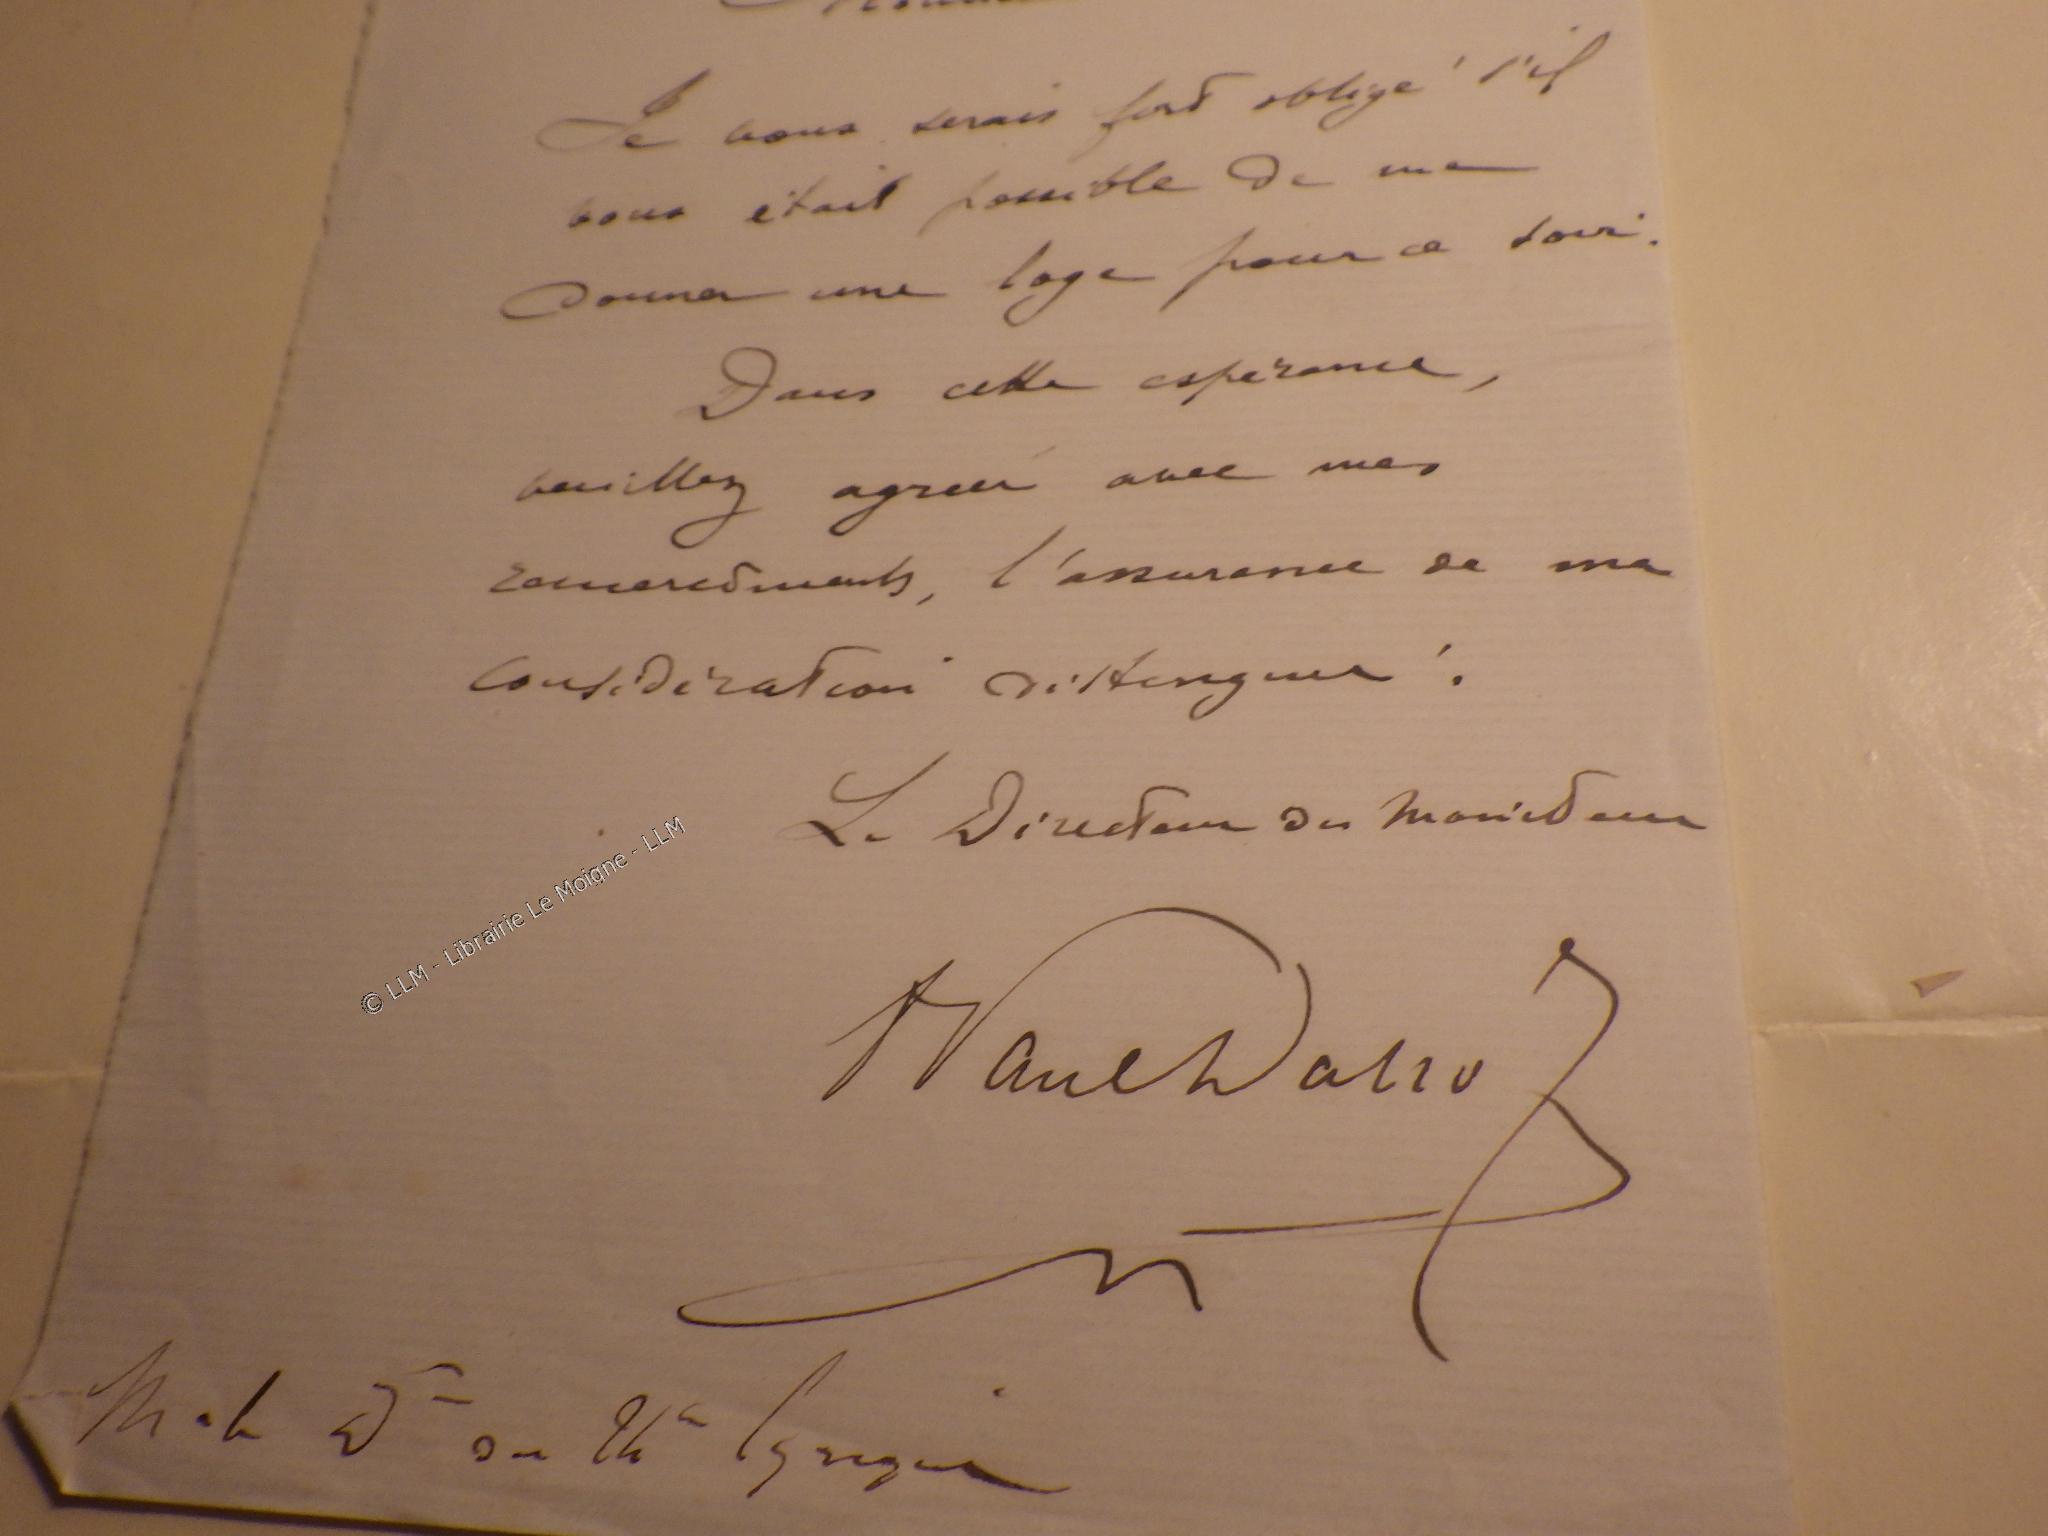 Je vous serais fort obligé s'il
vous était possible de me
donner une loge pour ce soir.
Dans cette espérance,
veuillez agréer avec mes
remerciements, l'assurance de ma
considération distinguée.
Le Directeur du Moniteur
Paul Dalloz
M. le Dr du Th. lyrique
© LLM - Librairie Le Moigne - LLM